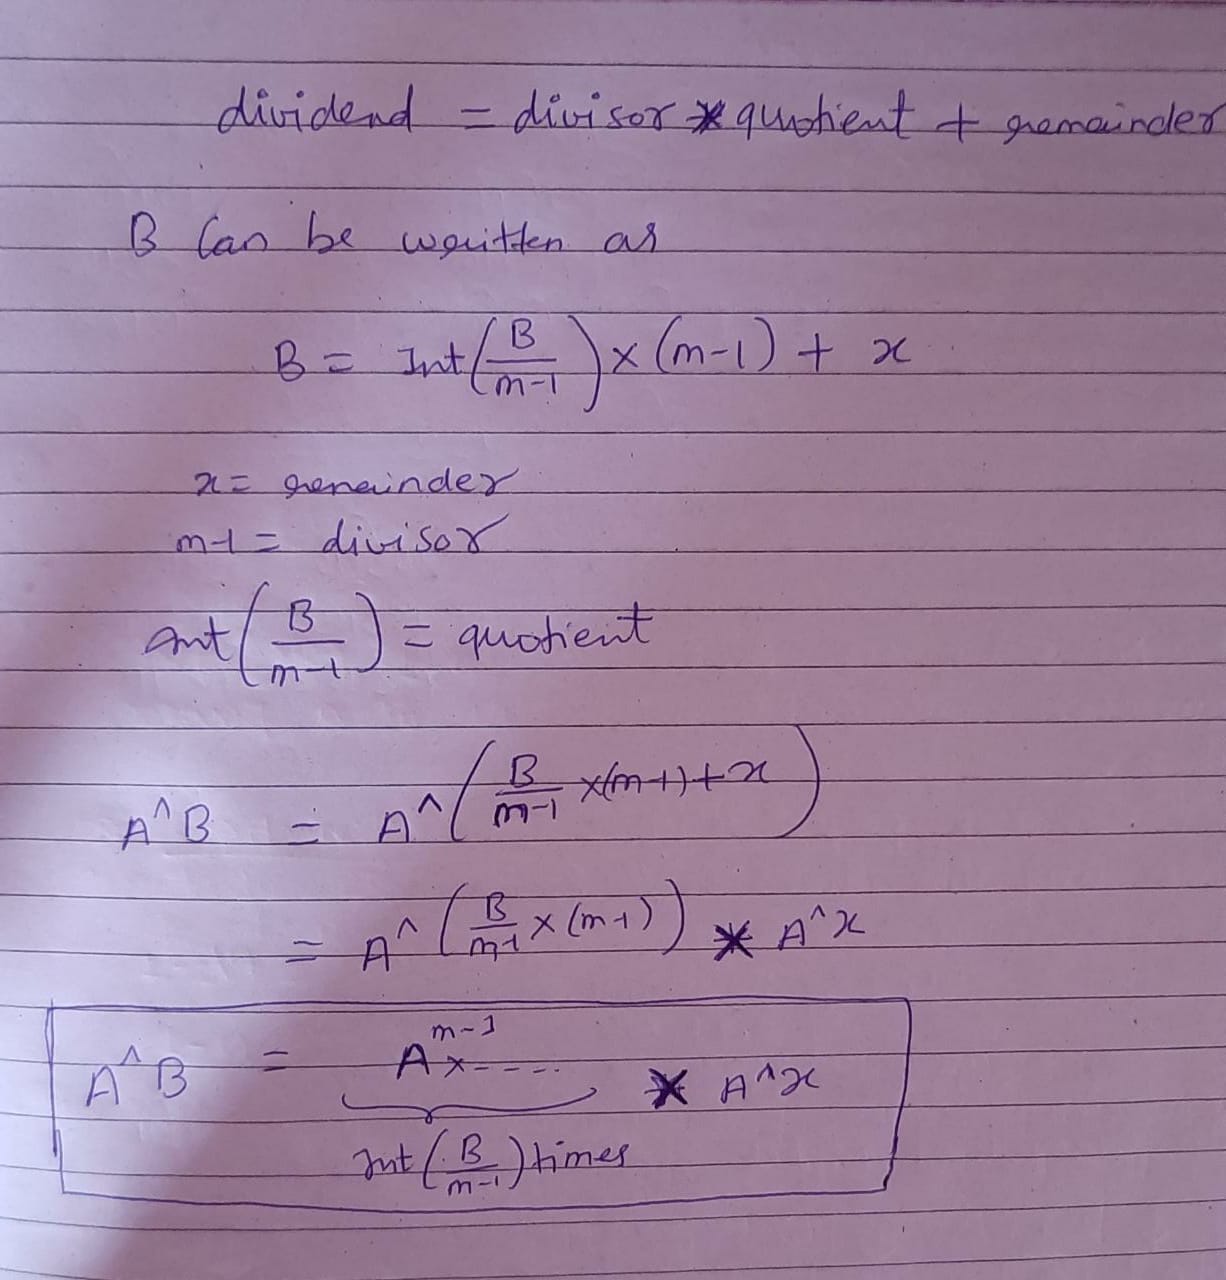 dividend = divisor * quotient + remainder
B Can be written as
B = Int(B/m-1) × (m-1) + x
x = remainder
m-1 = divisor
Int(B/m-1) = quotient
A^B = A^(B/m-1 ×(m-1)+x)
= A^(B/m-1 × (m-1)) * A^x
A^B = A^m-1 × ----.. * A^x
Int(B/m-1) times